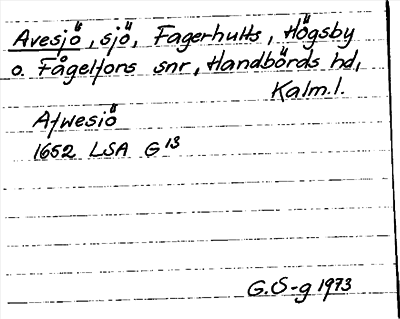 Avesjö, sjö, Fagerhults, Högsby
o. Fågelfors snr, Handbörds hd,
Kalm.l.
Afwesiö
1652 LSA G 13
G.Ö-g 1973